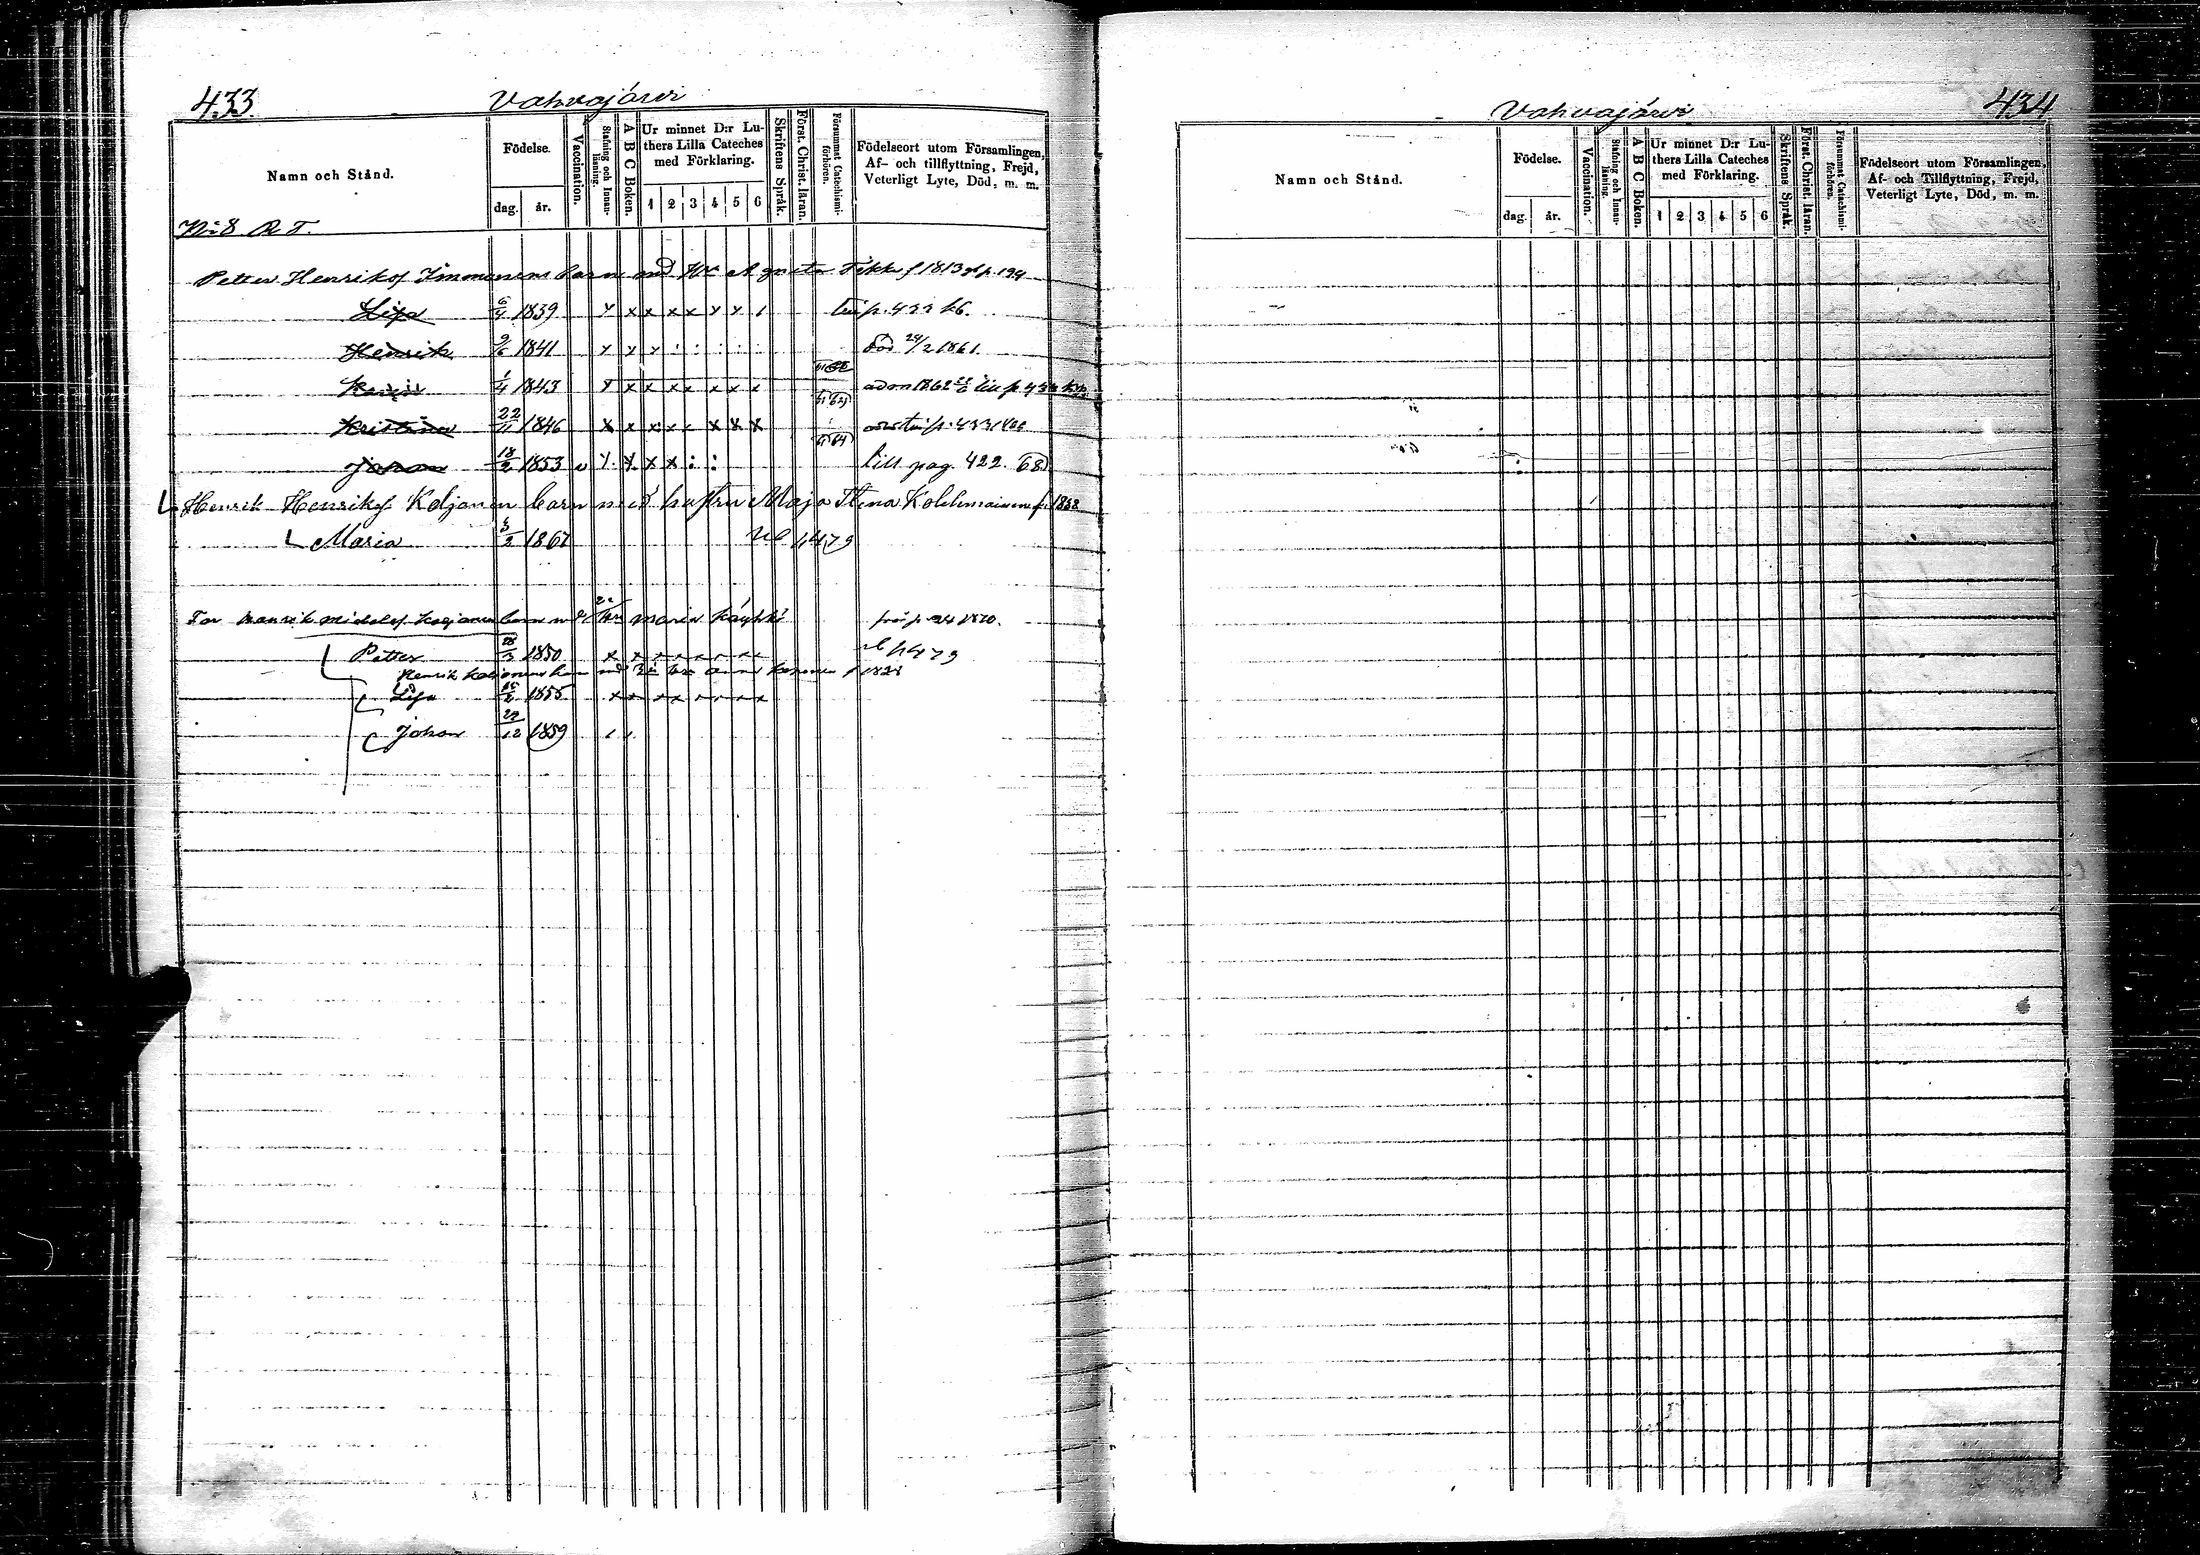 433.
Vahvajärvi
Namn och Stånd.
Födelse.
dag.
år.
Vaccination.
Stafning och Innanläsning.
A B C Boken.
Ur minnet D:r Luthers Lilla Cateches med Förklaring.
1 2 3 4 5 6
Skriftens Språk.
Först. Christ. läran.
Försummat Catechismiförhören.
Födelseort utom Församlingen,
Af- och tillflyttning, Frejd,
Veterligt Lyte, Död, m. m.
N:o 8 R T.
Petter Henriksf Immonens barn med Agneta f 1813 p. 194
Lisa 6/4 1839 x x x x x x x p. 433
Henrik 9/6 1841 x x x död 24/2 1861.
1/4 1843 x x x x x x x 1862
Kristina 22/11 1846 x x x x x x x x
Johan 18/2 1853 x x x x till pag. 422. 68)
Henrik Henriksf Koljonen barn med hustru Maja Stina Kolehmainen f. 1838
Maria 5/2 1867 479
Henrik Koljonen barn med 2:a hu Maria Käyhkö från p. 1870.
Petter 28/3 1850 x x x x x x x x 479
Henrik barn med 3:e Anna f 1828
Lisa 15/2 1855 x x x x x x x x
Johan 29/12 1859
Vahvajärvi
434
Namn och Stånd.
Födelse.
dag.
år.
Vaccination.
Stafning och Innanläsning.
A B C Boken.
Ur minnet D:r Luthers Lilla Cateches med Förklaring.
1 2 3 4 5 6
Skriftens Språk.
Först. Christ. läran.
Försummat Catechismiförhören.
Födelseort utom Församlingen,
Af- och Tillflyttning, Frejd,
Veterligt Lyte, Död, m. m.